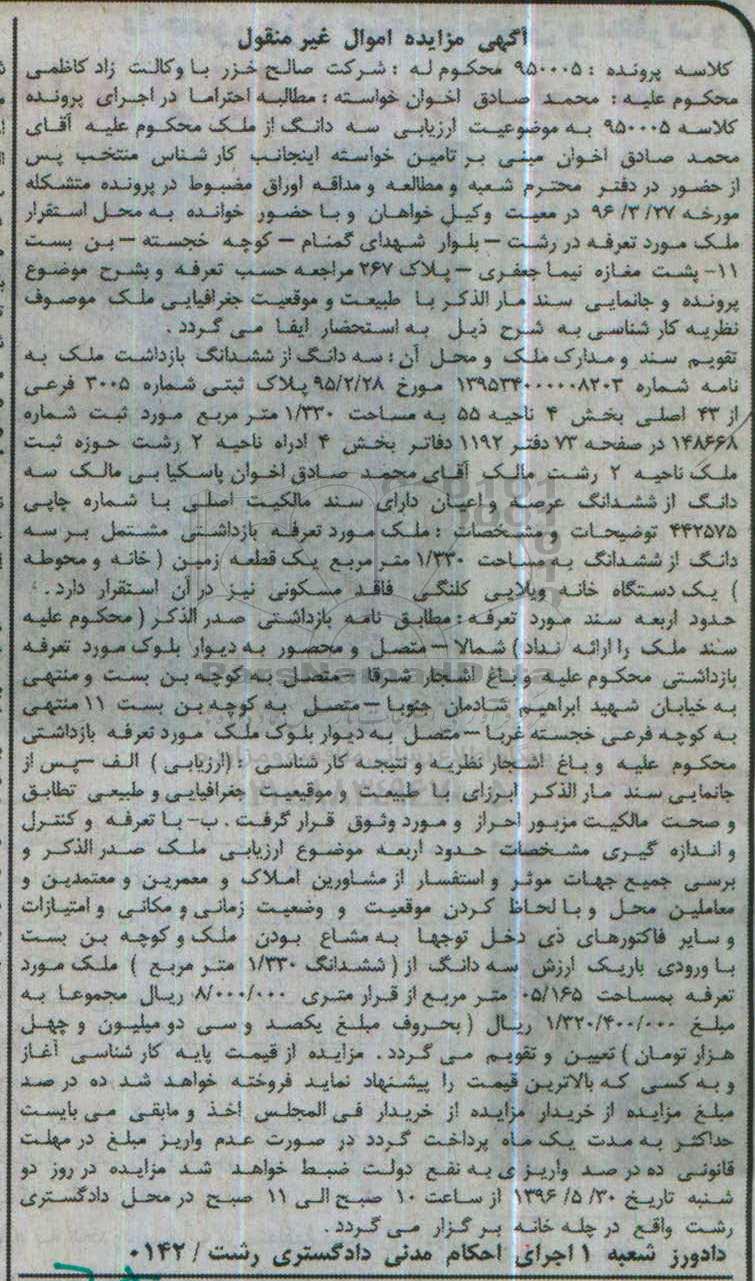 آگهی مزایده اموال غیر منقول
کلاسه پرونده : ۹۵۰۰۰۵ محکوم له : شرکت صالح خزر با وکالت زاد کاظمی
محکوم علیه : محمد صادق اخوان خواسته : مطالبه احتراما در اجرای پرونده
کلاسه ۹۵۰۰۰۵ به موضوعیت ارزیابی سه دانگ از ملک محکوم علیه آقای
محمد صادق اخوان مبنی بر تامین خواسته اینجانب کارشناس منتخب پس
از حضور در دفتر محترم شعبه و مطالعه و مداقه اوراق مضبوط در پرونده متشکله
مورخه ۹۶/۳/۲۷ در معیت وکیل خواهان و با حضور خوانده به محل استقرار
ملک مورد تعرفه در رشت – بلوار شهدای گمنام – کوچه خجسته – بن بست
۱۱- پشت مغازه نیما جعفری – پلاک ۲۶۷ مراجعه حسب تعرفه و بشرح موضوع
پرونده و جانمایی سند مار الذکر با طبیعت و موقعیت جغرافیایی ملک موصوف
نظریه کارشناسی به شرح ذیل به استحضار ایفا می گردد .
تقویم سند و مدارک ملک و محل آن : سه دانگ از ششدانگ بازداشت ملک به
نامه شماره ۱۳۹۵۳۴۰۰۰۰۰۸۲۰۳ مورخ ۹۵/۲/۲۸ پلاک ثبتی شماره ۳۰۰۵ فرعی
از ۴۳ اصلی بخش ۴ ناحیه ۵۵ به مساحت ۱/۳۳۰ متر مربع مورد ثبت شماره
۱۴۸۶۶۸ در صفحه ۷۳ دفتر ۱۱۹۲ دفاتر بخش ۴ ادراه ناحیه ۲ رشت حوزه ثبت
ملک ناحیه ۲ رشت مالک آقای محمد صادق اخوان پاسکیا بی مالک سه
دانگ از ششدانگ عرصه و اعیان دارای سند مالکیت اصلی با شماره چاپی
۴۴۲۵۷۵ توضیحات و مشخصات : ملک مورد تعرفه بازداشتی مشتمل بر سه
دانگ از ششدانگ به مساحت ۱/۳۳۰ متر مربع یک قطعه زمین ( خانه و محوطه
) یک دستگاه خانه ویلایی کلنگی فاقد مسکونی نیز در آن استقرار دارد .
حدود اربعه سند مورد تعرفه : مطابق نامه بازداشتی صدر الذکر ( محکوم علیه
سند ملک را ارائه نداد ) شمالا – متصل و محصور به دیوار بلوک مورد تعرفه
بازداشتی محکوم علیه و باغ اشجار شرقا – متصل به کوچه بن بست و منتهی
به خیابان شهید ابراهیم شادمان جنوبا – متصل به کوچه بن بست ۱۱ منتهی
به کوچه فرعی خجسته غربا – متصل به دیوار بلوک ملک مورد تعرفه بازداشتی
محکوم علیه و باغ اشجار نظریه و نتیجه کارشناسی : (ارزیابی ) الف –پس از
جانمایی سند مار الذکر ابرزای با طبیعت و موقیعیت جغرافیایی و طبیعی تطابق
و صحت مالکیت مزبور احراز و مورد وثوق قرار گرفت . ب- با تعرفه و کنترل
و اندازه گیری مشخصات حدود اربعه موضوع ارزیابی ملک صدر الذکر و
برسی جمیع جهات موثر و استفسار از مشاورین املاک و معمرین و معتمدین و
معاملین محل و با لحاظ کردن موقعیت و وضعیت زمانی و مکانی و امتیازات
و سایر فاکتورهای ذی دخل توجها به مشاع بودن ملک و کوچه بن بست
با ورودی باریک ارزش سه دانگ از ( ششدانگ ۱/۳۳۰ متر مربع ) ملک مورد
تعرفه بمساحت ۰۵/۱۶۵ متر مربع از قرار متری ۸/۰۰۰/۰۰۰ ریال مجموعا به
مبلغ ۱/۳۲۰/۴۰۰/۰۰۰ ریال ( بحروف مبلغ یکصد و سی دو میلیون و چهل
هزار تومان ) تعیین و تقویم می گردد . مزایده از قیمت پایه کارشناسی آغاز
و به کسی که بالاترین قیمت را پیشنهاد نماید فروخته خواهد شد ده در صد
مبلغ مزایده از خریدار مزایده از خریدار فی المجلس اخذ و مابقی می بایست
حداکثر به مدت یک ماه پرداخت گردد در صورت عدم واریز مبلغ در مهلت
قانونی ده در صد واریزی به نفع دولت ضبط خواهد شد مزایده در روز دو
شنبه تاریخ ۳۰/ ۵/ ۱۳۹۶ از ساعت ۱۰ صبح الی ۱۱ صبح در محل دادگستری
رشت واقع در چله خانه برگزار می گردد .
دادورز شعبه ۱ اجرای احکام مدنی دادگستری رشت / ۰۱۴۲